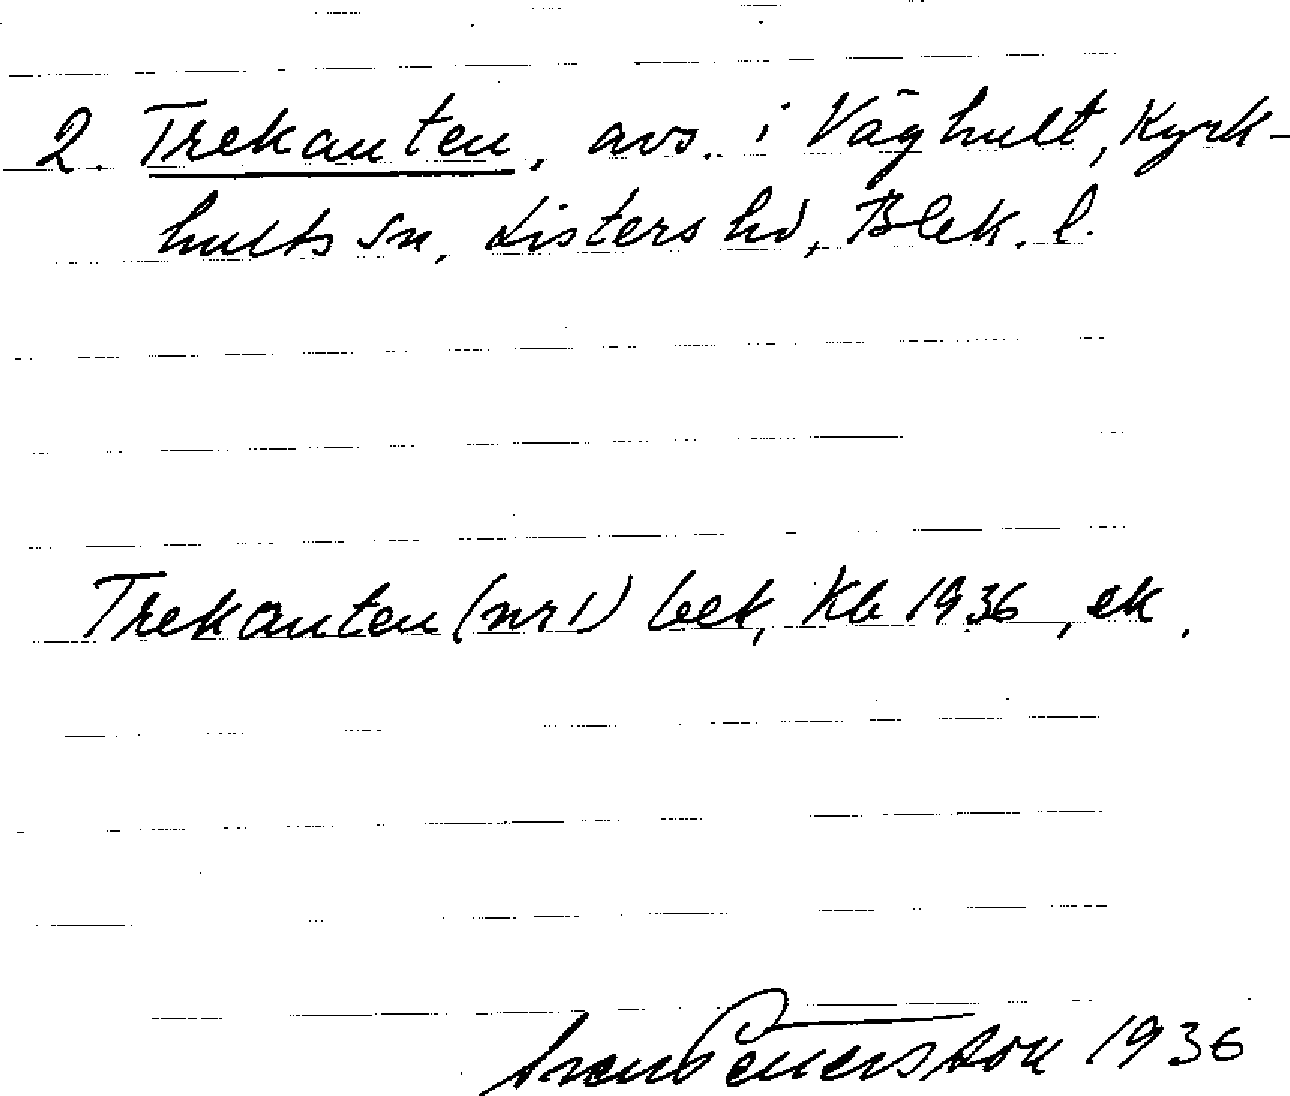 2. Trekanten, avs. i Väghult, Kyrk-
hults sn, Listers hd, Blek. l.
Trekanten (nr 1) bek, Kb 1936, ek.
1936